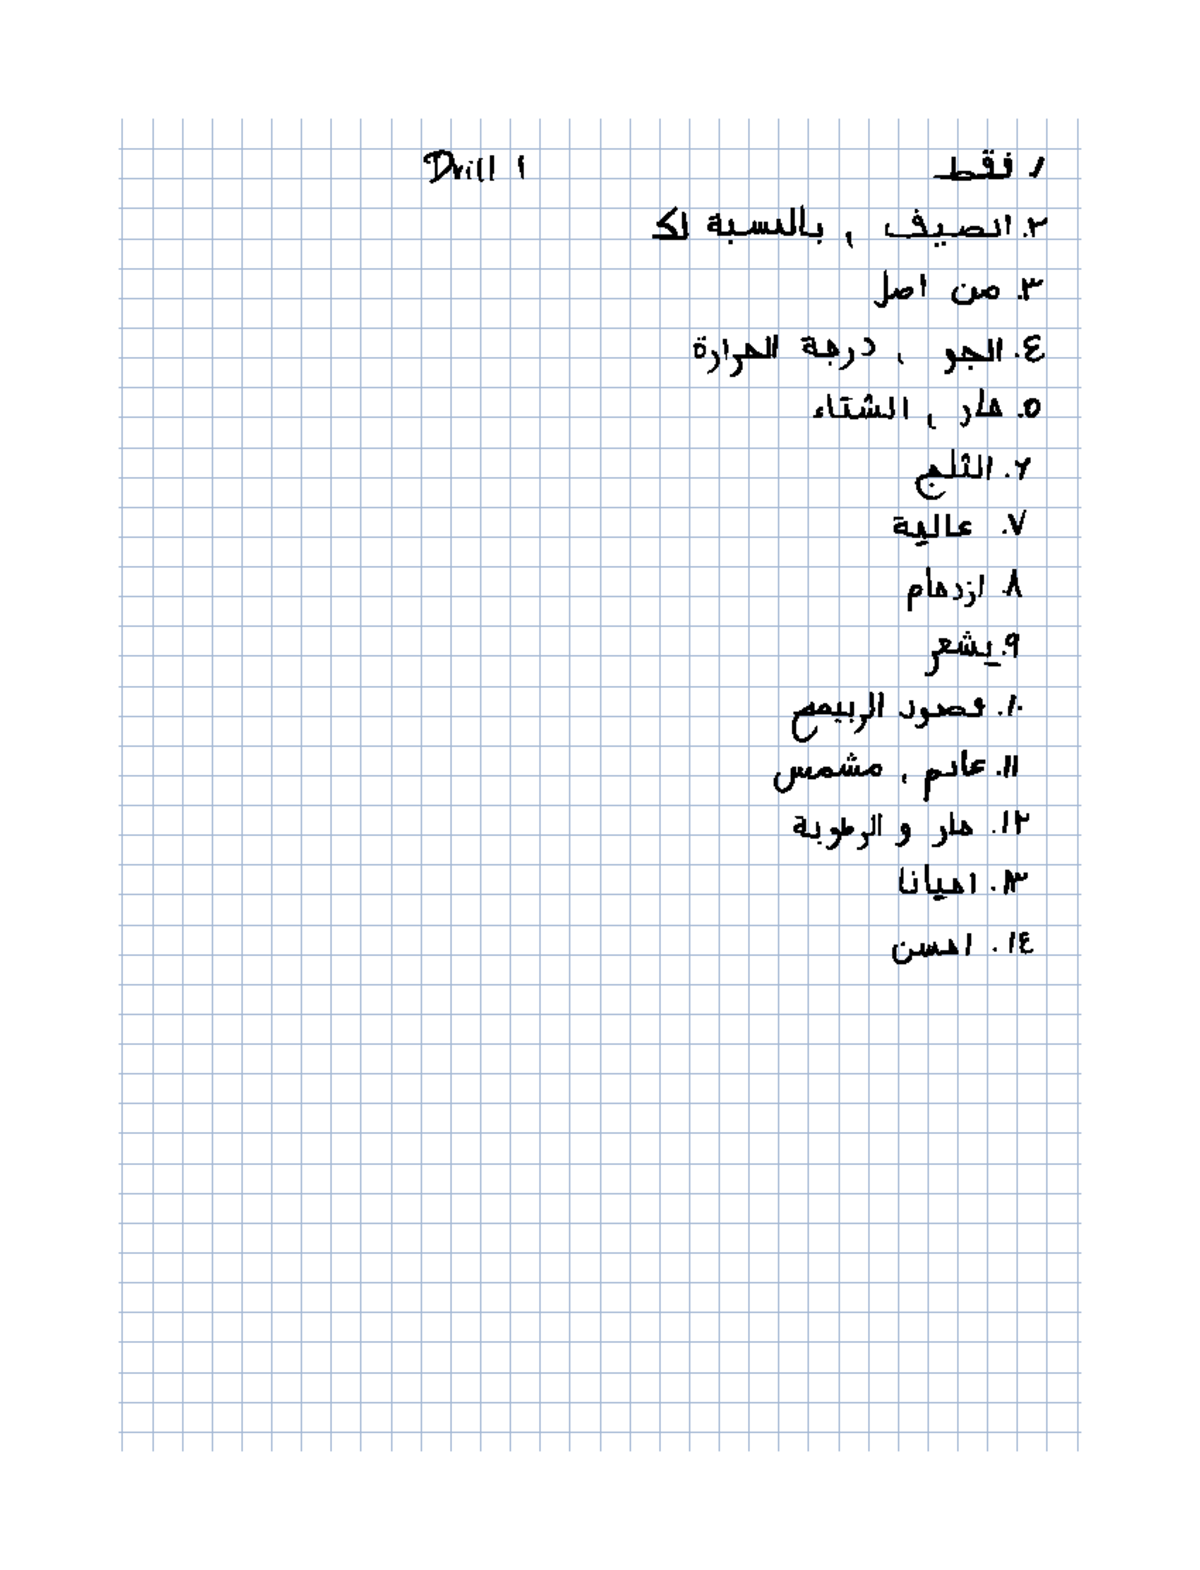 Drill 1
١ فقط
٢. الصيف , بالنسبة لك
٣. من اصل
٤. الجو , درجة الحرارة
٥. حار , الشتاء
٦. الثلج
٧. عالية
٨. ازدحام
٩. يشعر
١٠. فصود الربيع
١١. غائم , مشمس
١٢. حار و الرطوبة
١٣. احيانا
١٤. احسن